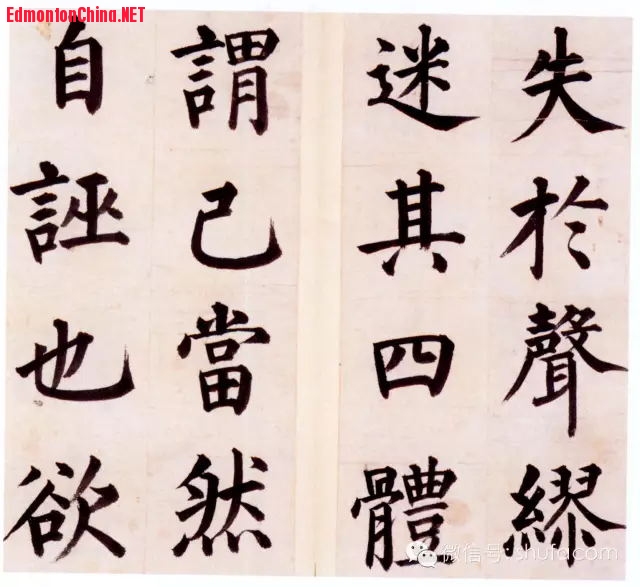 EdmontonChina.NET
失於聲繆
迷其四體
謂己當然
自誣也欲
微信号: shufa.com